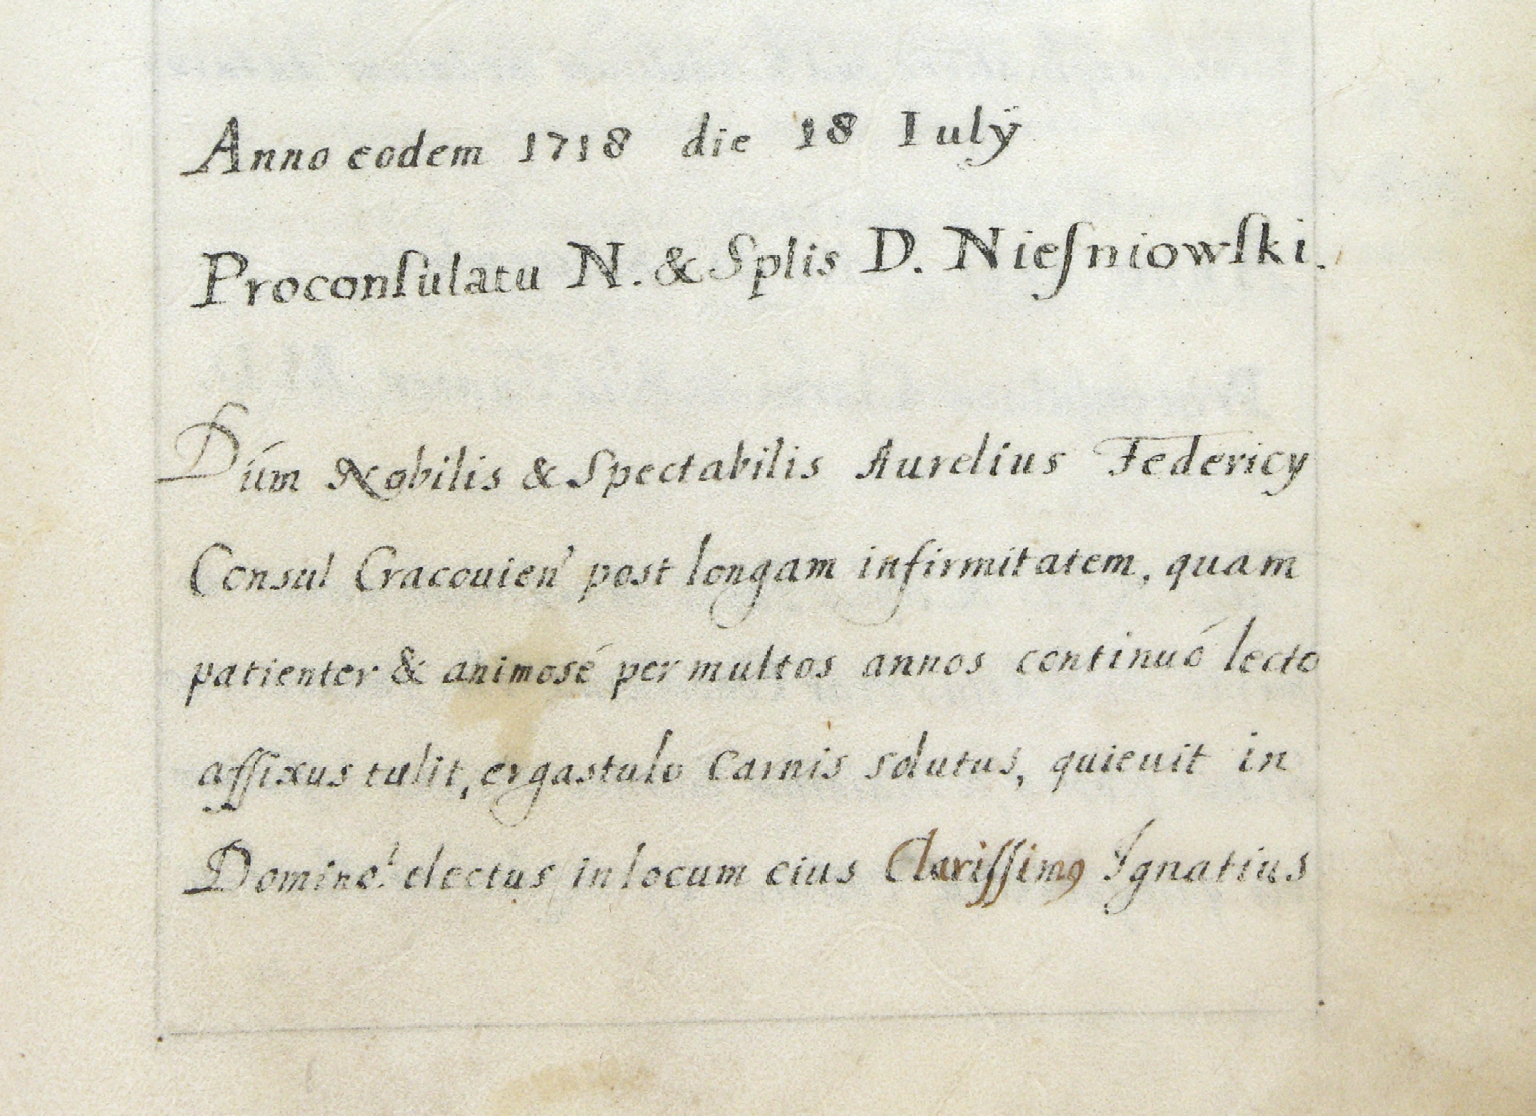 Anno eodem 1718 die 18 Iulÿ
Proconſulatu N. & Splis D. Nieſniowſki.
Dum Nobilis & Spectabilis Aurelius Federicy
Consul Cracouien' post longam infirmitatem, quam
patienter & animosé per multos annos continuó lecto
affixus tulit, ergastulo Carnis solutus, quieuit in
Domino! electus in locum eius Clarissimꝰ Ignatius